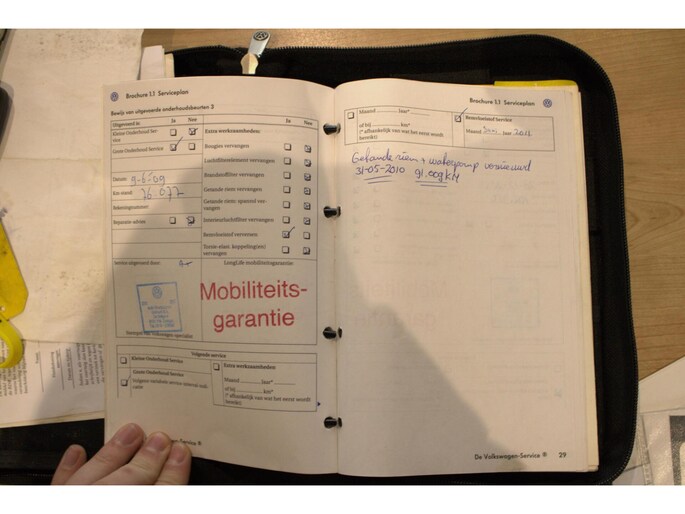 Brochure 1.1 Serviceplan
Bewijs van uitgevoerde onderhoudsbeurten 3
Uitgevoerd is: Ja Nee
Kleine Onderhoud Service
Grote Onderhoud Service
Datum: 9-6-09
Km-stand: 76.077
Rekeningnummer:
Reparatie-advies
Extra werkzaamheden: Ja Nee
Bougies vervangen
Luchtfilterelement vervangen
Brandstoffilter vervangen
Getande riem vervangen
Getande riem; spanrol vervangen
Interieurluchtfilter vervangen
Remvloeistof verversen
vervangen
Service uitgevoerd door:
LongLife-mobiliteitsgarantie
Mobiliteits-
garantie
Volgende service
Kleine Onderhoud Service
Grote Onderhoud Service
Volgens variabele service-interval-indicatie
Extra werkzaamheden
Maand Jaar*
of bij km*
(* afhankelijk van wat het eerst wordt bereikt)
Brochure 1.1 Serviceplan
Maand Jaar*
of bij km*
(* afhankelijk van wat het eerst wordt bereikt)
Remvloeistof Service
Maand Jaar
Getande riem + waterpomp vernieuwd
31-05-2010 91.009 KM
De Volkswagen-Service ® 29